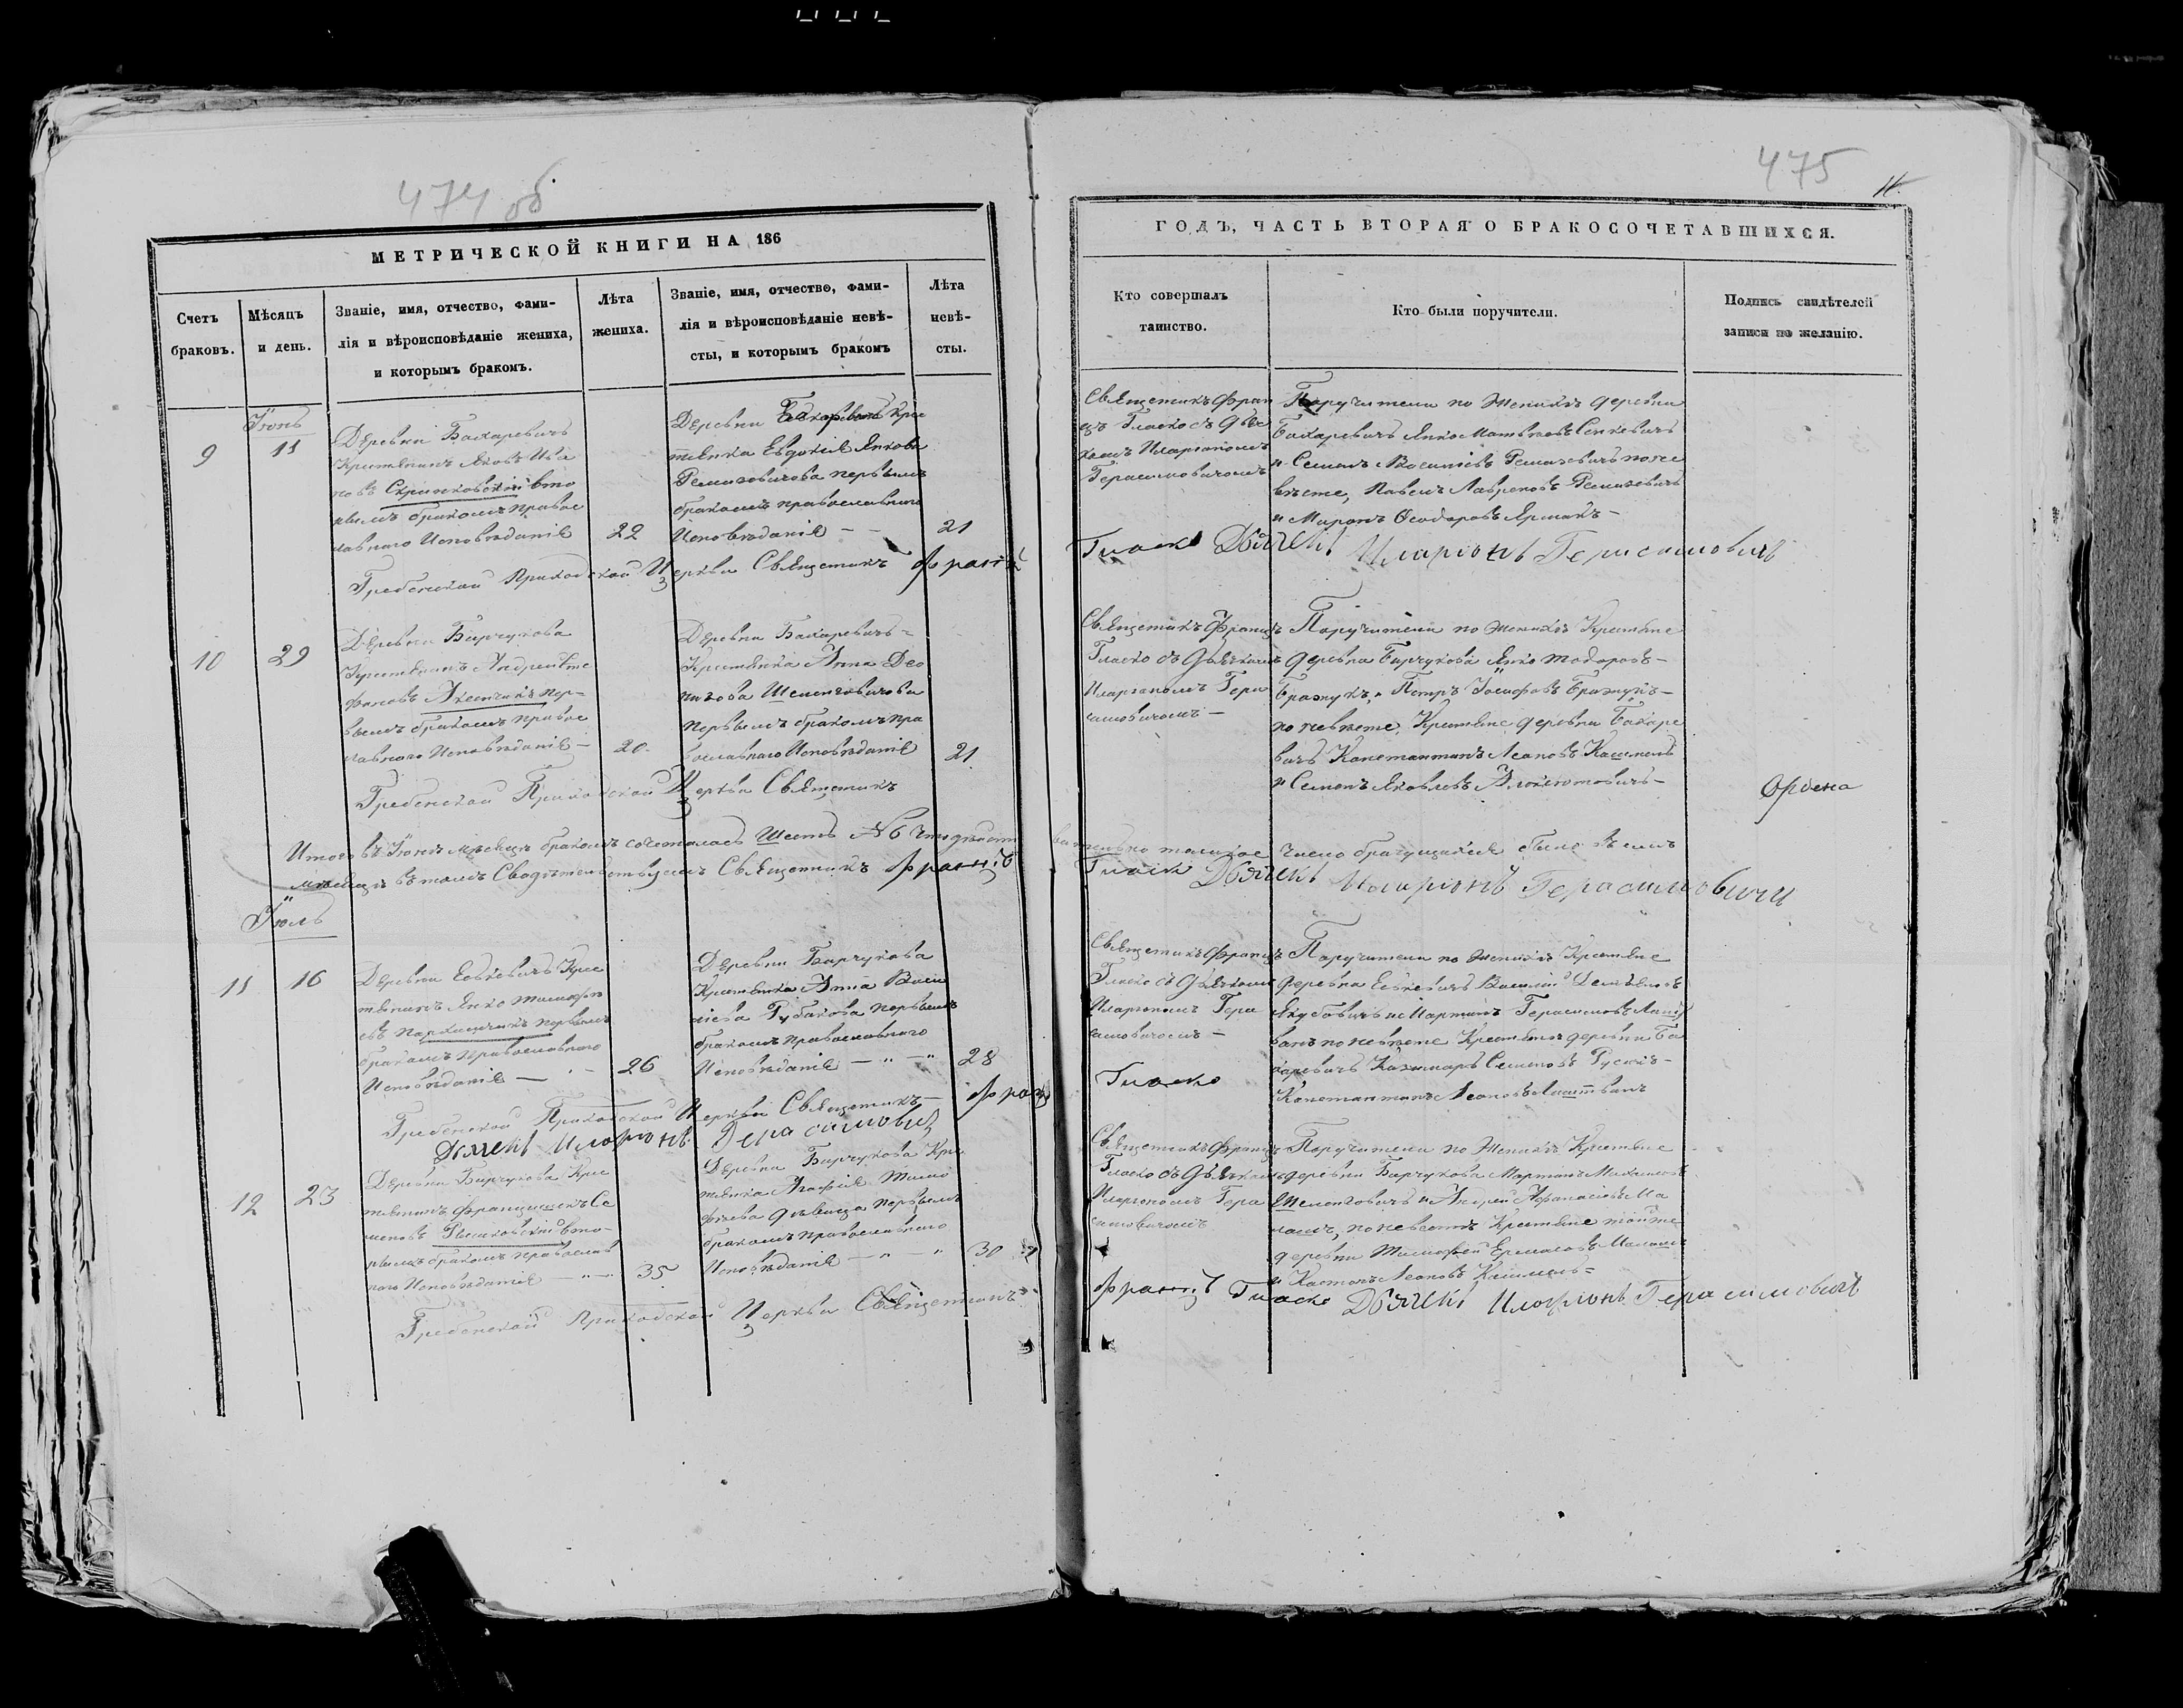 474 об
МЕТРИЧЕСКОЙ КНИГИ НА 186
Счетъ
браковъ.
Мѣсяцъ
и день.
Званіе, имя, отчество, фами-
лія и вѣроисповѣданіе жениха,
и которымъ бракомъ.
Лѣта
жениха.
Званіе, имя, отчество, фами-
лія и вѣроисповѣданіе невѣ-
сты, и которымъ бракомъ
Лѣта
невѣ-
сты.
Іюнь
9
11
Деревни Бакаревичъ
Крестянинъ Яковъ Ива
новъ Скринковскій вто
рымъ бракомъ правос
лавнаго Исповѣданія
22
Деревни Кре
стянка Евдокія Якова
Ремизовичова первымъ
бракомъ православнаго
Исповѣданія – –
21
Гребенской Приходской Церкви Священникъ Францъ
10
29
Деревни Барчукова
Крестянинъ Андрей Сте
фановъ пер-
вымъ бракомъ правос
лавнаго Исповѣданія –
20.
Деревни Бакаревичъ =
Крестянка Анна Лео
низова Шеленговичова
первымъ бракомъ пра
вославнаго Исповѣданія
21
Гребенской Приходской Церкви Священникъ
Итого въ Іюнѣ мѣсяцѣ бракомъ сочеталось Шесть № 6 что дѣйст
мѣсяцѣ въ томъ Свидѣтельствуемъ Священникъ Францъ
Іюль
11
16
Деревни Евкевичъ Крес
тянинъ Янко Тимофѣ
евъ первымъ
бракомъ Православнаго
Исповѣданія –
26
Деревни Барчукова
Крестянка Анна Васи
ліева Губакова первымъ
бракомъ православнаго
Исповѣданія – " – "
28
Гребенской Приходской Церкви Священникъ – Францъ
Дьячекъ Иларіонъ Герасимовичъ
12
23
Деревни Барчукова Крес
тянинъ Францишекъ Се
меновъ вто-
рымъ бракомъ православ
наго Исповѣданія – " –
35
Деревни Барчукова Крес
тянка Агафія Тимо
фѣева дѣвица первымъ
бракомъ православнаго
Исповѣданія – " – "
30
Гребенской Приходской Церкви Священникъ
475
ГОДЪ, ЧАСТЬ ВТОРАЯ О БРАКОСОЧЕТАВШИХСЯ.
Кто совершалъ
таинство.
Кто были поручители.
Подпись свидѣтелей
записи по желанію.
Священникъ Фран
цъ Гласко съ дьяч
комъ Иларіономъ
Герасимовичомъ
Поручители по Женихѣ деревни
Бакаревичъ Янко Матвѣевъ Сенкевичъ
и Семенъ Василіевъ Ремизовичъ по не
вѣсте, Павелъ Лавреновъ Ремизовичъ
и Миронъ Ѳеодоровъ Ярмакъ –
Гласко Дьячекъ Иларіонъ Герасимовичъ
Священникъ Францъ
Гласко съ дьячкомъ
Иларіономъ Гера
симовичомъ –
Поручители по Женихѣ Крестяне
деревни Барчукова Янко Тодоровъ –
и Петръ Іосифовъ
по невѣсте Крестяне деревни Бакаре
вичъ Константинъ Леоновъ Кашмель
и Семенъ Яковлевъ
Ордена
вительно толикое число брачущихся было въ семъ
Гласко Дьячекъ Иларіонъ Герасимовичъ
Священникъ Францъ
Гласко съ дьячкомъ
Иларіономъ Гера
симовичомъ –
Гласко
Поручители по Женихѣ Крестяне
деревни Евкевичъ Василій Демьяновъ
Якубовичъ и Мартинъ Герасимовъ
по невѣсте Крестяне деревни Ба
каревичъ Казимиръ Семеновъ
Константинъ Леоновъ
Священникъ Францъ
Гласко съ дьячкомъ
Иларіономъ Гера
симовичомъ
Поручители по Женихѣ Крестяне
деревни Барчукова Мартинъ
Шеленговичъ и Андрей Афанасіевъ Ма
по невестѣ Крестяне тойже
деревни Тимофей
и Леоновъ Кашмель =
Францъ Гласко Дьячекъ Иларіонъ Герасимовичъ